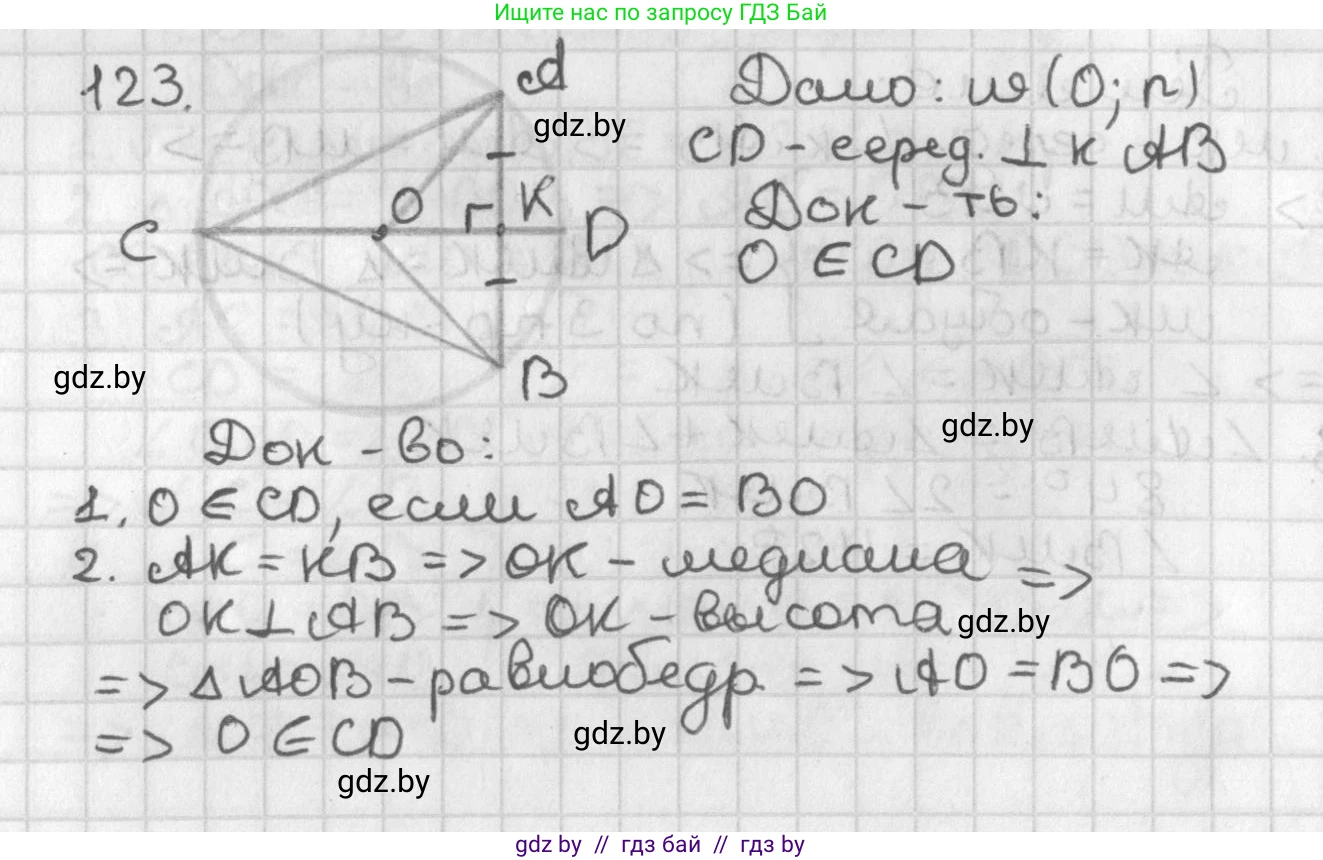 Ищите нас по запросу ГДЗ Бай
123.
A
Дано: w (O; r)
gdz.by
CD - серед. ⊥ к AB
O
K
Док - ть:
C
D
O ∈ CD
gdz.by
B
gdz.by
Док - во:
1. O ∈ CD, если AO = BO
2. AK = KB => OK - медиана =>
OK ⊥ AB => OK - высота
gdz.by
=> △ AOB - равнобедр. => AO = BO =>
=> O ∈ CD
gdz.by
gdz.by
gdz.by // гдз бай // гдз by